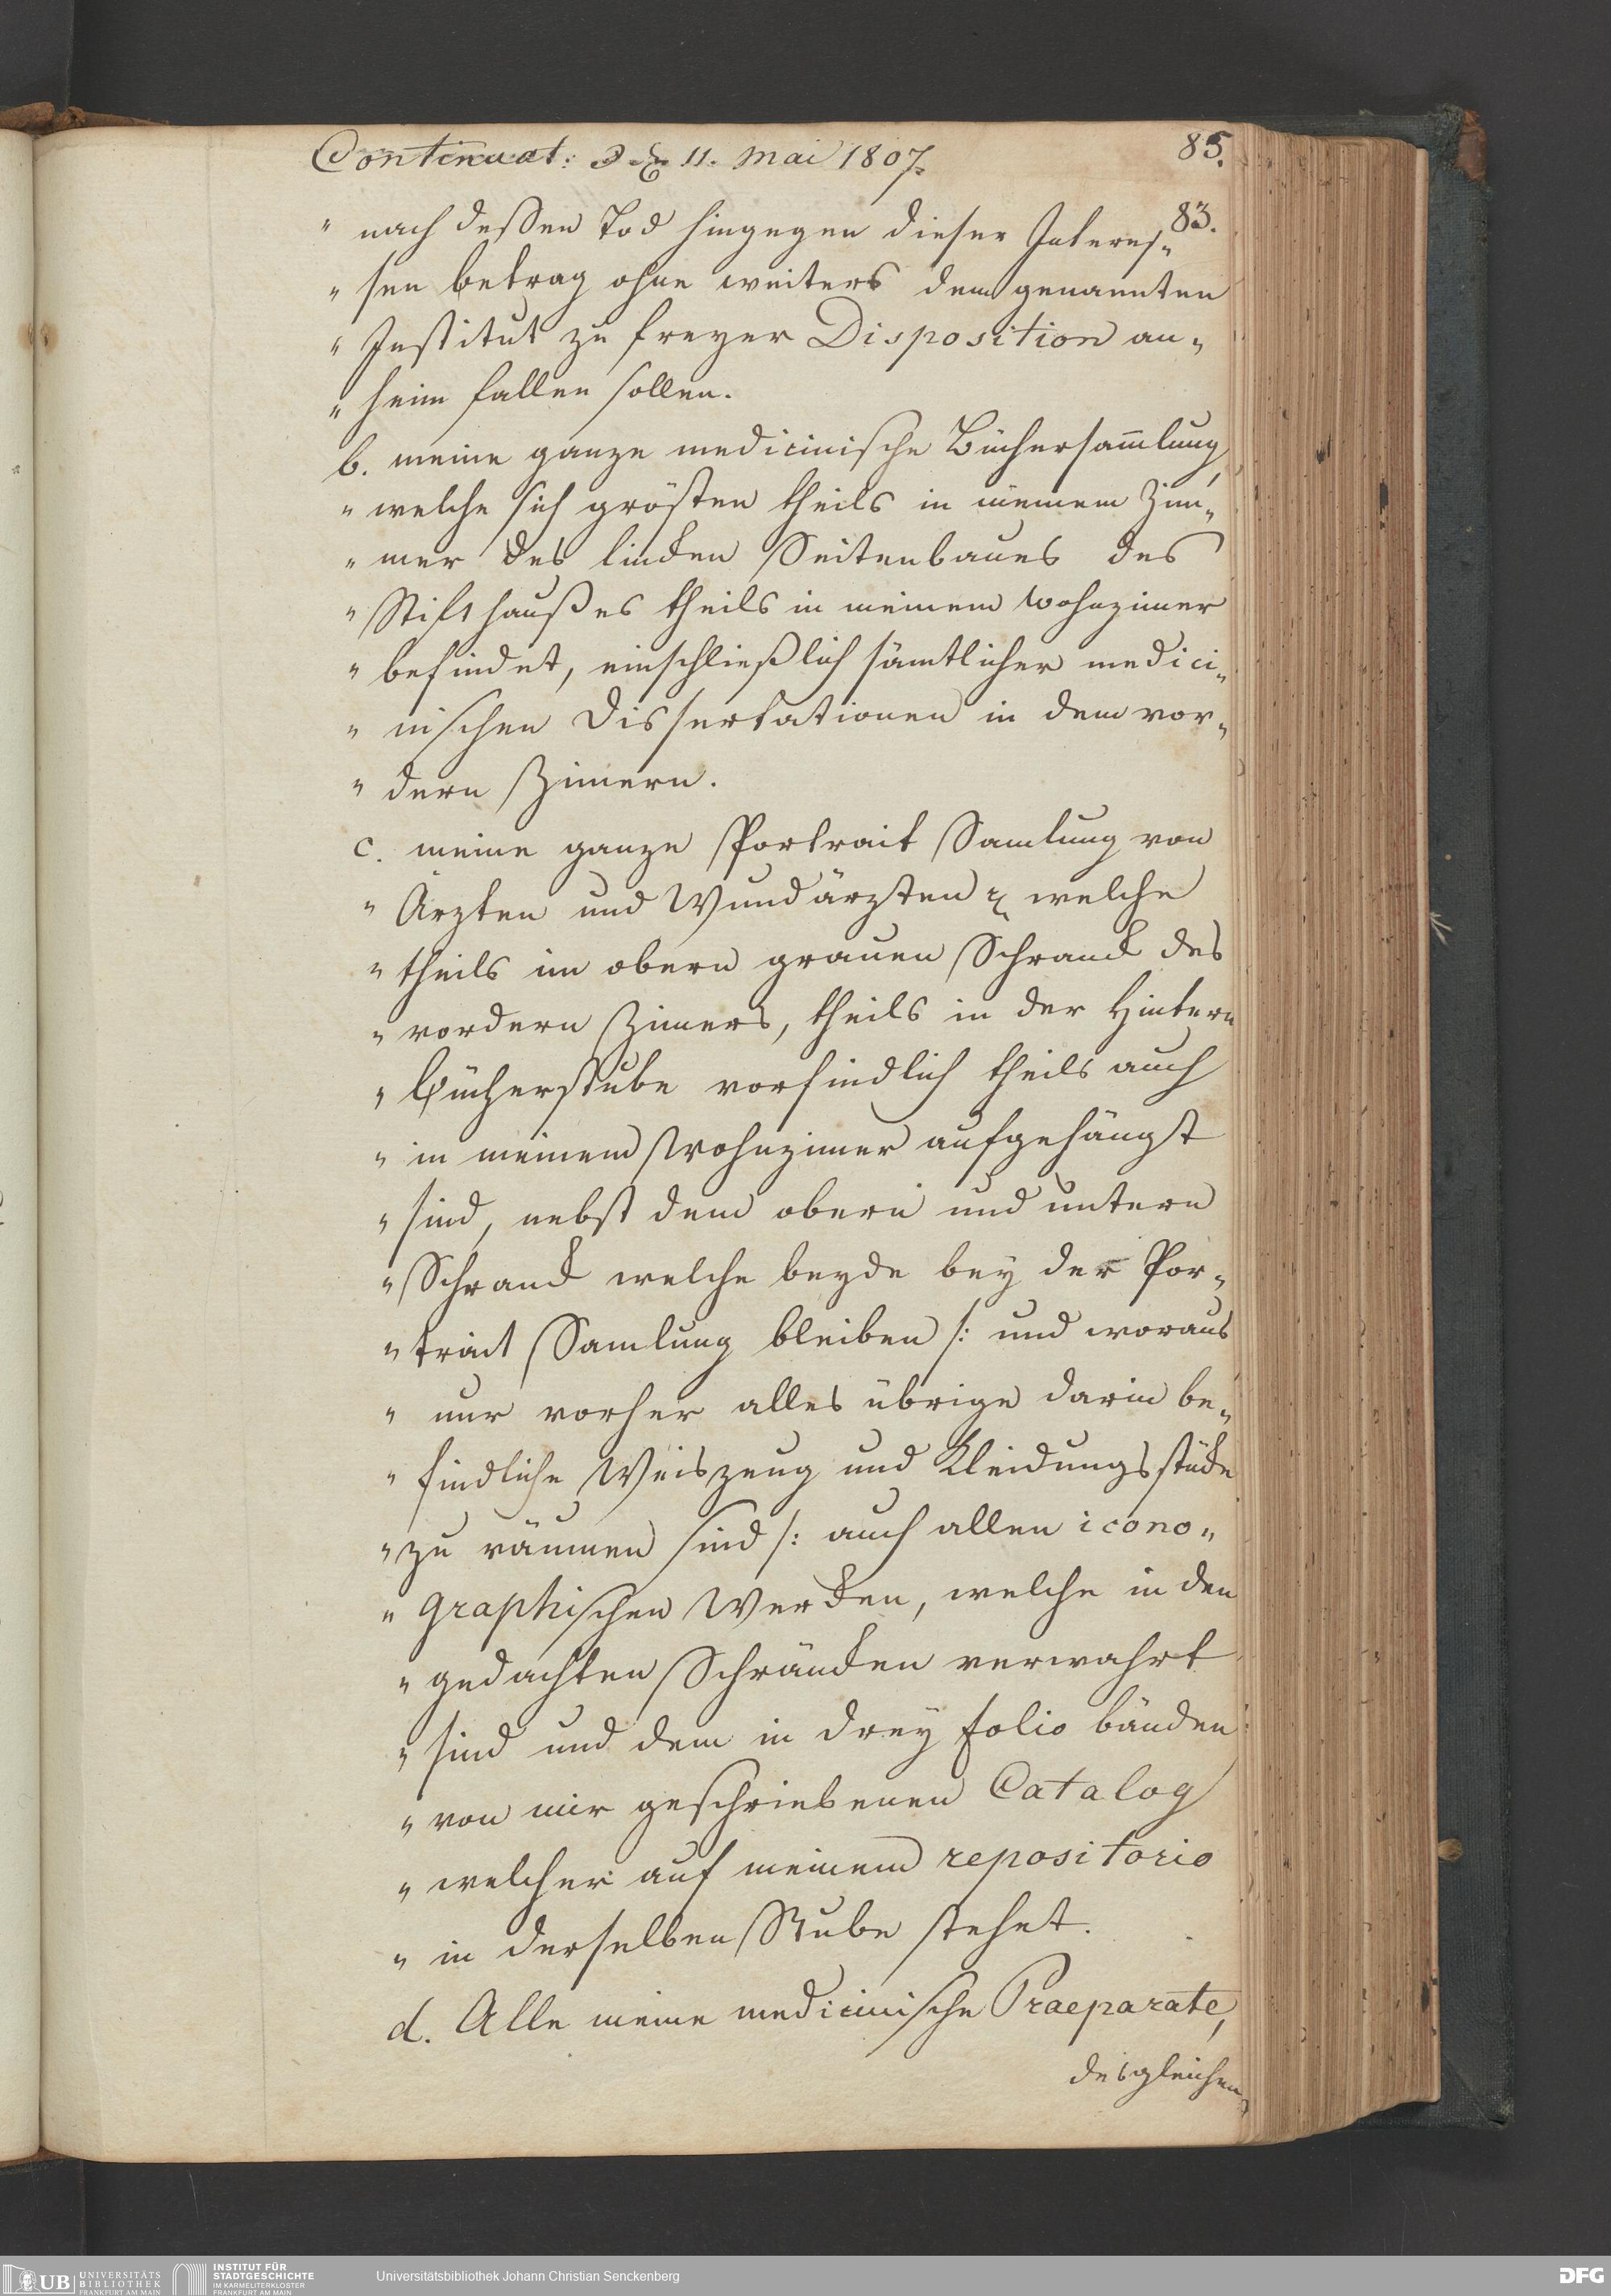 Continuat: 11. Mai 1807.
85.
83.
" nach deßen Tod hingegen dieser Interes„
" sen betrag ohne weiters dem genannten
" Institut zu freyer Disposition an„
" heim fallen sollen.
b. meine ganze medicinische Büchersam̄lung,
" welche sich grösten theils in meinem Zim„
" mer des lincken Seitenbaues des
" Stifthaußes theils in meinem wohnzimer
" befindet, einschließlich sämtlicher medici„
" nischen Dissertationen in dem vor„
" dern Zimern.
c. meine ganze Portrait Samlung von
" Ärzten und Wundärzten ꝛc welche
" theils im obern grauen Schranck des
" vordern Zimers, theils in der Hintern
" Bücherstube vorfindlich theils auch
" in meinem Wohnzimer aufgehängt
" sind, nebst dem obern und untern
" Schranck welche beyde bey der Por„
" trait Samlung bleiben /: und woraus
" nur vorher alles übrige darin be„
" findliche Weiszeug und Kleidungsstücke
" zu räumen sind /: auch allen icono„
" graphischen Wercken, welche in den
" gedachten Schräncken verwahrt
" sind und dem in drey folio bänden
" von mir geschriebenen Catalog
" welcher auf meinem repositorio
" in derselben Stube stehet.
d. Alle meine medicinische Praeparate,
desgleichen
UB UNIVERSITÄTS
BIBLIOTHEK
FRANKFURT AM MAIN
INSTITUT FÜR
STADTGESCHICHTE
IM KARMELITERKLOSTER
FRANKFURT AM MAIN
Universitätsbibliothek Johann Christian Senckenberg
DFG